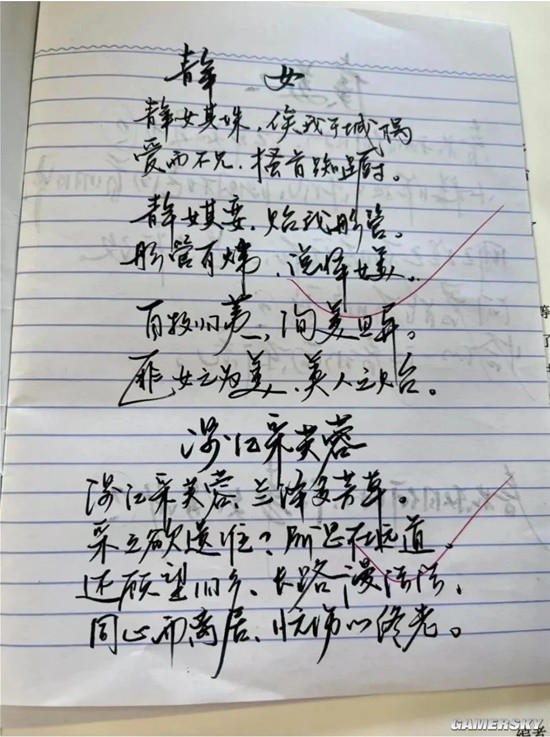 静女
静女其姝，俟我于城隅
爱而不见，搔首踟蹰。
静女其娈，贻我彤管。
彤管有炜，说怿女美。
自牧归荑，洵美且异。
匪女之为美，美人之贻。
涉江采芙蓉
涉江采芙蓉，兰泽多芳草。
采之欲遗谁？所思在远道。
还顾望旧乡，长路漫浩浩，
同心而离居，忧伤以终老。
GAMERSKY